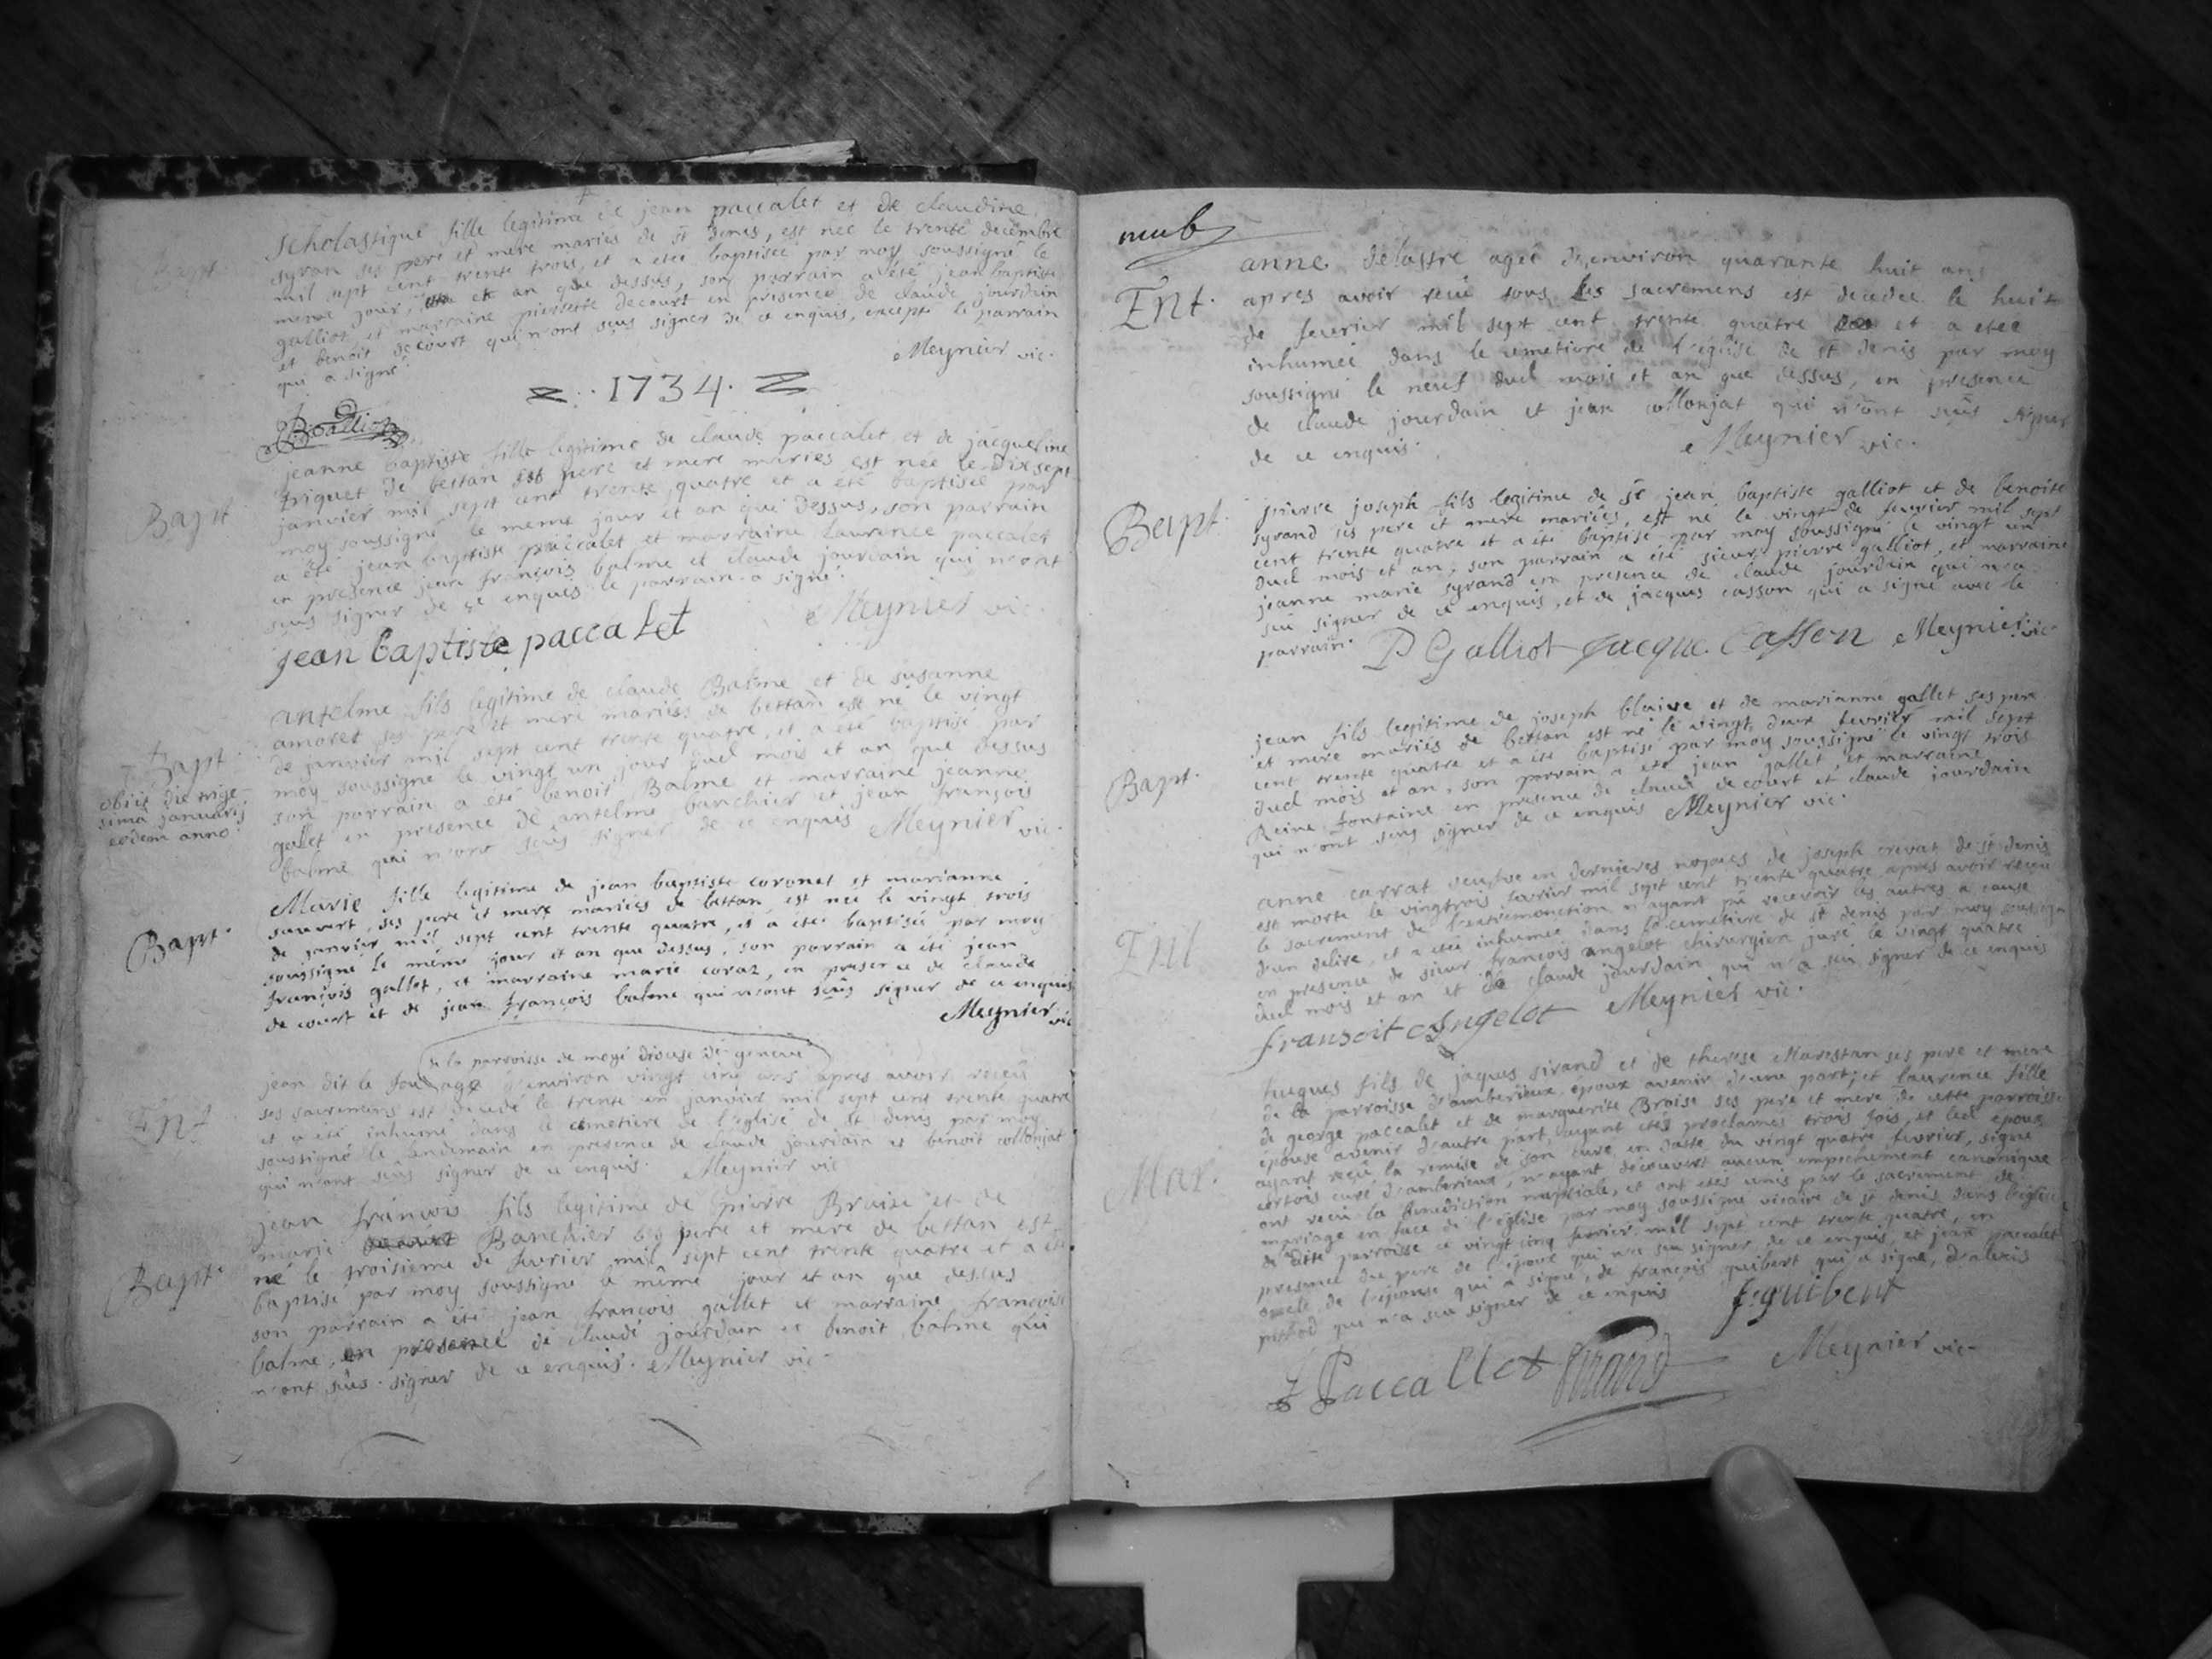 Bapt.
Scholastique fille legitime de jean paccalet et de claudine
syran ses pere et mere mariés de st denis, est née le trente decembre
mil sept cent trente trois, et a etée baptisée par moy soussigné le
meme jour, et an que dessus, son parrain a été jean baptiste
galliot, et marraine pierrette decourt en presence de claude jourdain
et benoit decourt qui n'ont sçus signer de ce enquis, excepté le parrain
qui a signé.
Meynier vic.
1734.
Bapt
jeanne baptiste fille legitime de claude paccalet et de jacqueline
triquet de bettan ses pere et mere mariés est née le dix sept
janvier mil sept cent trente quatre et a été baptisée par
moy soussigné le meme jour et an que dessus, son parrain
a été jean baptiste paccalet et marraine laurence paccalet
en presence jean françois balme et claude jourdain qui n'ont
sçus signer de ce enquis le parrain a signé.
Meynier vic.
jean baptiste paccalet
Bapt.
obiit die trige
sima januarij
eodem anno
antelme fils legitime de claude Balme et de susanne
amoret ses pere et mere mariés de bettan est né le vingt
de janvier mil sept cent trente quatre, et a été baptisé par
moy soussigné le vingt un jour dud mois et an que dessus
son parrain a été benoit Balme et marraine jeanne
galet en presence de antelme banchier et jean françois
balme qui n'ont sçûs signer de ce enquis Meynier vic.
Bapt.
Marie fille legitime de jean baptiste coronet et marianne
sauvert, ses pere et mere mariés de bettan, est née le vingt trois
de janvier mil sept cent trente quatre, et a étée baptisée par moy
soussigné le même jour et an que dessus, son parrain a été jean
françois gallet, et marraine marie coraz, en presence de claude
de court et de jean françois balme qui n'ont sçûs signer de ce enquis
Meynier vic
Ent
de la parroisse de mogé diocese de geneve
jean dit le agé d'environ vingt cinq ans apres avoir reçeu
ses sacremens est decedé le trente un janvier mil sept cent trente quatre
et a été inhumé dans le cemetiere de l'eglise de st denis par moy
soussigné le landemain en presence de claude jourdain et benoit collonjat
qui n'ont sçûs signer de ce enquis. Meynier vic
Bapt.
jean françois fils legitime de pierre Braise et de
marie Banchier ses pere et mere de bettan est
né le troisieme de fevrier mil sept cent trente quatre et a été
baptisé par moy soussigné le même jour et an que dessus
son parrain a été jean françois gallet et marraine françoise
balme, en presence de claude jourdain et benoit balme qui
n'ont sçûs signer de ce enquis. Meynier vic
Ent.
anne delastre agée d'environ quarante huit ans
apres avoir reçû tous les sacremens est decedée le huit
de fevrier mil sept cent trente quatre et a etée
inhumée dans le cemetiere de l'eglise de st denis par moy
soussigné le neuf dud mois et an que dessus, en presence
de claude jourdain et jean collonjat qui n'ont sçûs signer
de ce enquis. Meynier vic.
Bapt.
pierre joseph fils legitime de sr jean baptiste galliot et de benoite
syrand ses pere et mere mariées, est né le vingt de fevrier mil sept
cent trente quatre et a été baptisé par moy soussigné le vingt un
dud mois et an, son parrain a été sieur pierre galliot, et marraine
jeanne marie syrand en presence de claude jourdain qui n'a
sçu signer de ce enquis, et de jacques casson qui a signé avec le
parrain. P Galliot jacque Casson Meynier vic
Bapt.
jean fils legitime de joseph blaive et de marianne gallet ses pere
et mere mariés de bettan est né le vingt deux fevrier mil sept
cent trente quatre et a été baptisé par moy soussigné le vingt trois
dud mois et an, son parrain a été jean gallet, et marraine
Reine fontaine en presence de claude decourt et claude jourdain
qui n'ont sçus signer de ce enquis Meynier vic.
Ent
anne carrat veufve en dernieres nopces de joseph crevat de st denis
est morte le vingtrois fevrier mil sept cent trente quatre apres avoir reçeu
le sacrement de l'extremonction n'ayant pû recevoir les autres a cause
d'un delire, et a etée inhumée dans le cemetiere de st denis par moy soussigné
en presence de sieur françois angelot chirurgien juré le vingt quatre
dud mois et an et de claude jourdain qui n'a sçu signer de ce enquis
fransoit Angelot Meynier vic.
Mar.
hugues fils de jaques sirand et de therese Marestan ses pere et mere
de la parroisse d'amberieux époux avenir d'une part, et laurence fille
de george paccalet et de marguerite Broise ses pere et mere de cette parroisse
épouse avenir d'autre part, ayant etés proclamés trois fois, et led epoux
ayant reçû la remise de son curé en datte du vingt quatre fevrier, signé
curé d'amberieux, n'ayant découvert aucun empechement canonique
ont reçû la benediction nuptiale, et ont etés unis par le sacrement de
mariage en face de l'église par moy soussigné vicaire de st denis dans l'eglise
de dite parroisse ce vingt cinq fevrier mil sept cent trente quatre, en
presence du pere de l'epoux qui n'a sçu signer de ce enquis, et jean paccalet
oncle de l'épouse qui a signé, de françois guibert qui a signé, d'alexis
qui n'a sçu signer de ce enquis f. guibert
J Paccallet Sirand Meynier vic.